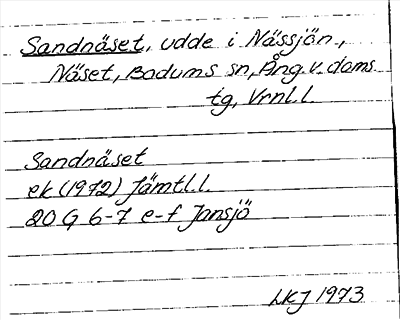 Sandnäset, udde i Nässjön,
Näset, Bodums sn, Ång.v.doms
tg, Vrnl.l.
Sandnäset
ek (1972) Jämtl.l.
20 G 6-7 e-f Jansjö
LKJ 1973